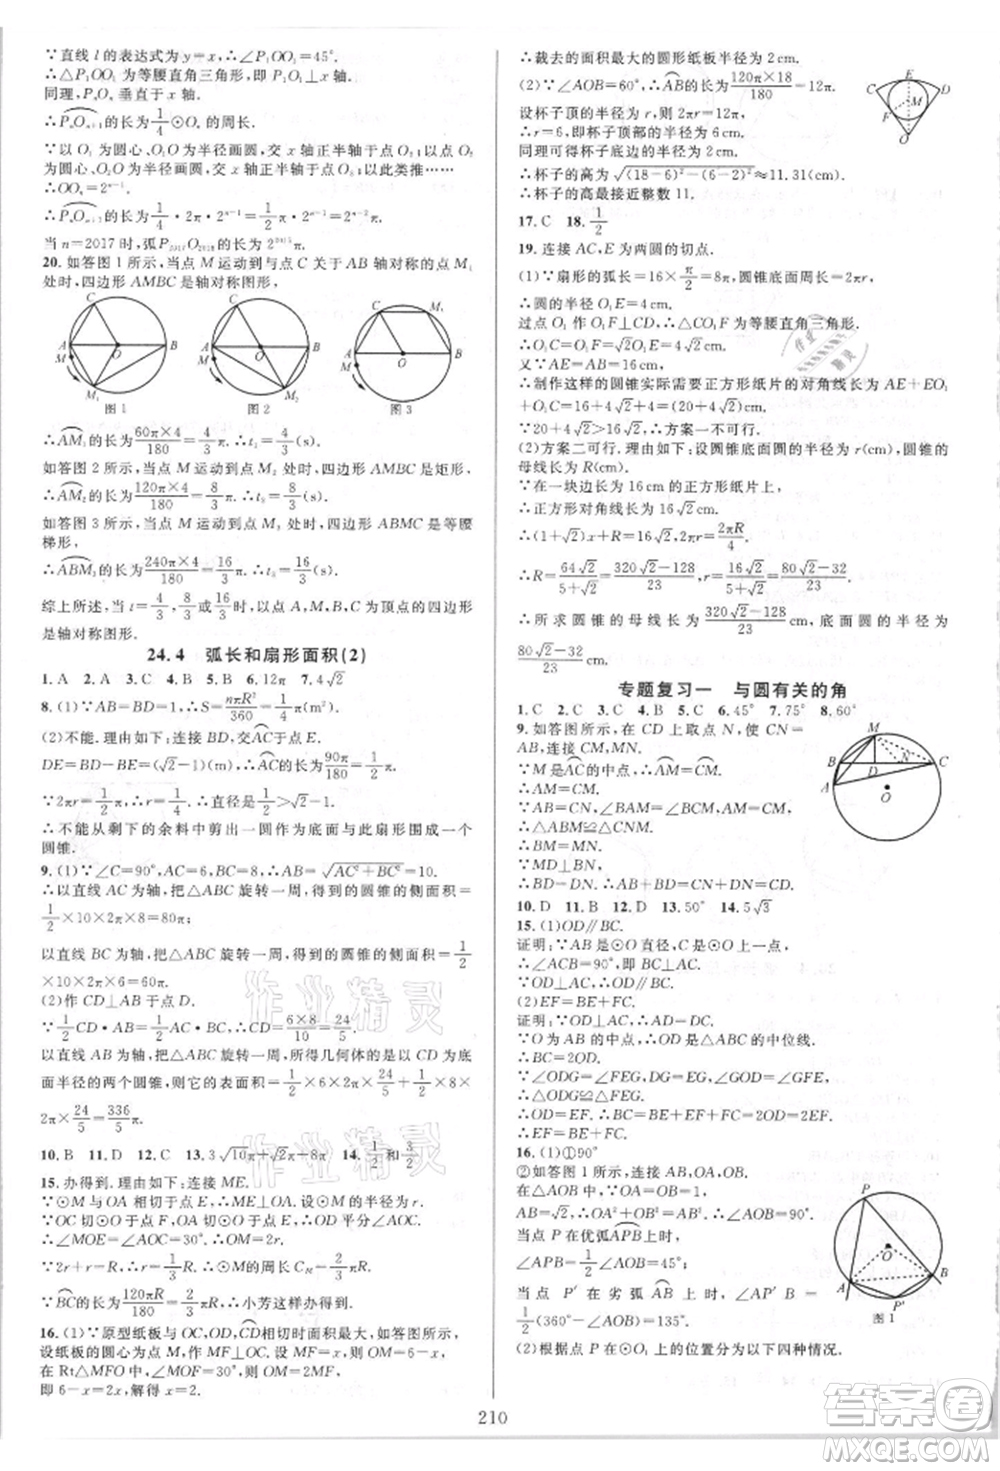 ∵直线 l 的表达式为 y=x,∴∠P₁OO₁=45°.
∴△P₁OO₁ 为等腰直角三角形,即 P₁O₁⊥x 轴.
同理,PₙOₙ 垂直于 x 轴.
∴PₙOₙ₊₁的长为 1/4 ⊙Oₙ 的周长.
∵以 O₁ 为圆心,O₁O 为半径画圆,交 x 轴正半轴于点 O₂,
以 O₂ 为圆心,O₂O 为半径画圆,交 x 轴正半轴于点 O₃,以此类推……
∴OOₙ=2ⁿ⁻¹.
∴PₙOₙ₊₁的长为 1/4·2π·2ⁿ⁻¹=1/2π·2ⁿ⁻¹=2ⁿ⁻²π.
当 n=2017 时,弧P₂₀₁₇O₂₀₁₈=2²⁰¹⁵π.
20. 如答图 1 所示,当点 M 运动到与点 C 关于 AB 轴对称的点 M₁
处时,四边形 AMBC 是轴对称图形,
C A O B M M₁ 图 1
C A O B M M₂ 图 2
C M₃ A O B M 图 3
∴AM₁的长为 60π×4/180=4/3π.∴t₁=4/3(s).
如答图 2 所示,当点 M 运动到点 M₂ 处时,四边形 AMBC 是矩形,
∴AM₂的长为 120π×4/180=8/3π.∴t₂=8/3(s).
如答图 3 所示,当点 M 运动到点 M₃ 处时,四边形 ABMC 是等腰
梯形,
∴ABM₃的长为 240π×4/180=16/3π.∴t₃=16/3(s).
综上所述,当 t=4/3或8/3或16/3时,以点 A,M,B,C 为顶点的四边形
是轴对称图形.
24.4 弧长和扇形面积(2)
1. A 2. A 3. C 4. B 5. B 6. 12π 7. 4√2
8. (1)∵AB=BD=1,∴S=nπR²/360=1/4π(m²).
(2)不能. 理由如下:连接 BD,交AC于点 E.
DE=BD−BE=(√2−1)m,AC的长为 90π/180=1/2π.
∵2πr=1/2π,∴r=1/4.∴直径是1/2>√2−1.
∴不能从剩下的余料中剪出一圆作为底面与此扇形围成一个
圆锥.
9. (1)∵∠C=90°,AC=6,BC=8,∴AB=√(AC²+BC²)=10.
∴以直线 AC 为轴,把△ABC 旋转一周,得到的圆锥的侧面积=
1/2×10×2π×8=80π;
以直线 BC 为轴,把△ABC 旋转一周,得到的圆锥的侧面积=1/2
×10×2π×6=60π.
(2)作 CD⊥AB 于点 D.
∵1/2CD·AB=1/2AC·BC,∴CD=6×8/10=24/5.
以直线 AB 为轴,把△ABC 旋转一周,所得几何体的是以 CD 为底
面半径的两个圆锥,则它的表面积=1/2×8×2π×24/5+1/2×6×
2π×24/5=336/5π.
10. B 11. D 12. C 13. 3√10π+9π 14. 1/2和3/2
15. 办得到. 理由如下:连接 ME.
∵⊙M 与 OA 相切于点 E,∴ME⊥OA. 设⊙M 的半径为 r.
∵OC 切⊙M 于点 F,∴OD 平分∠AOC.
∴∠MOE=30°.∴OM=2r.
∵2r+r=R,∴r=1/3R,C_M=2/3πR.
∵BC的长为 120πR/180=2/3πR,∴小芳这样办得到.
16. (1)∵原型纸板与 OC,OD,CD相切时面积最大,如答图所示,
设纸板的圆心为点 M,作 MF⊥OC,∴∠MOF=30°.
在 Rt△MFO 中,∠MOF=30°,∴OM=2MF,
即 6−x=2x,解得 x=2.
∴裁去的面积最大的圆形纸板半径为 2 cm.
(2)∵∠AOB=60°,∴AB的长为 120π×18/180=12π.
设杯子顶的半径为 r,则 2πr=12π,
∴r=6,即杯子顶部的半径为 6 cm.
同理可得杯子底边的半径为 2 cm.
∴杯子的高为√((18−6)²−(6−2)²)≈11.31(cm).
∴杯子的高最接近整数 11.
C E D M F O
17. C 18. 1/2
19. 连接 AC,E 为两圆的切点.
(1)∵扇形的弧长=16×π/2=8π,圆锥底面周长=2πr,
∴圆的半径 O₁E=4 cm.
过点 O₁ 作 O₁F⊥CD,∴△CO₁F 为等腰直角三角形.
∴O₁C=√2O₁F=√2O₁E=4√2 cm.
又∵AE=AB=16 cm,
∴制作这样的圆锥实际需要正方形纸片的对角线长为 AE+EO₁
+O₁C=16+4+4√2=(20+4√2)cm.
∵20+4√2>16√2,∴方案一不可行.
(2)方案二可行. 理由如下:设圆锥底面圆的半径为 r(cm),圆锥的
母线长为 R(cm),
∵在一块边长为 16 cm 的正方形纸片上,
∴正方形对角线长为 16√2 cm.
∴(1+√2)r+R=16√2,2πr=2πR/4.
∴R=64√2/(5+√2)=(320√2−128)/23,r=16√2/(5+√2)=(80√2−32)/23.
∴所求圆锥的母线长为(320√2−128)/23 cm,底面圆的半径为
(80√2−32)/23 cm.
专题复习一 与圆有关的角
1. C 2. B 3. C 4. B 5. C 6. 45° 7. 75° 8. 60°
9. 如答图所示,在 CD 上取点 N,使 CN=
AB,连接 CM,MN.
∵M 是AC的中点,∴AM=CM.
∴AM=CM.
∵AB=CN,∠A=∠C,
∴△ABM≌△CNM.
∴BM=MN.
∵MD⊥BN,
∴BD=DN.∴CD=DN+CN=AB+BD.
M B D N C A O
10. D 11. B 12. D 13. 50° 14. 5√3
15. (1)OD∥BC.
证明:∵AB 是⊙O 直径,C 是⊙O 上一点,
∴∠ACB=90°,即 BC⊥AC.
∵OD⊥AC,∴OD∥BC.
(2)EF=BE+FC.
证明:∵OD⊥AC,∴AD=DC.
∵O 为 AB 的中点,∴OD 是△ABC 的中位线.
∴BC=2OD.
∵∠ODG=∠FEG,EG=DG,∠OGD=∠GFE,
∴△ODG≌△FEG.
∴OD=EF.∴BE+EF+FC=BC=2OD=2EF.
∴EF=BE+FC.
16. (1)①90°
②如答图 1 所示,连接 AB,PA,PB.
在△AOB 中,∵OA=OB=1,
AB=√2,∴OA²+OB²=AB².∴∠AOB=90°.
当点 P 在优弧APB上时,
∠APB=1/2∠AOB=45°;
当点 P′ 在劣弧 AB 上时,∠AP′B=
1/2(360°−∠AOB)=135°.
P O A B P′ 图 1
(2)根据点 P 在⊙O₁ 上的位置分为以下四种情况.
作业精灵
作业精灵
210
答案圈
MXQE.COM